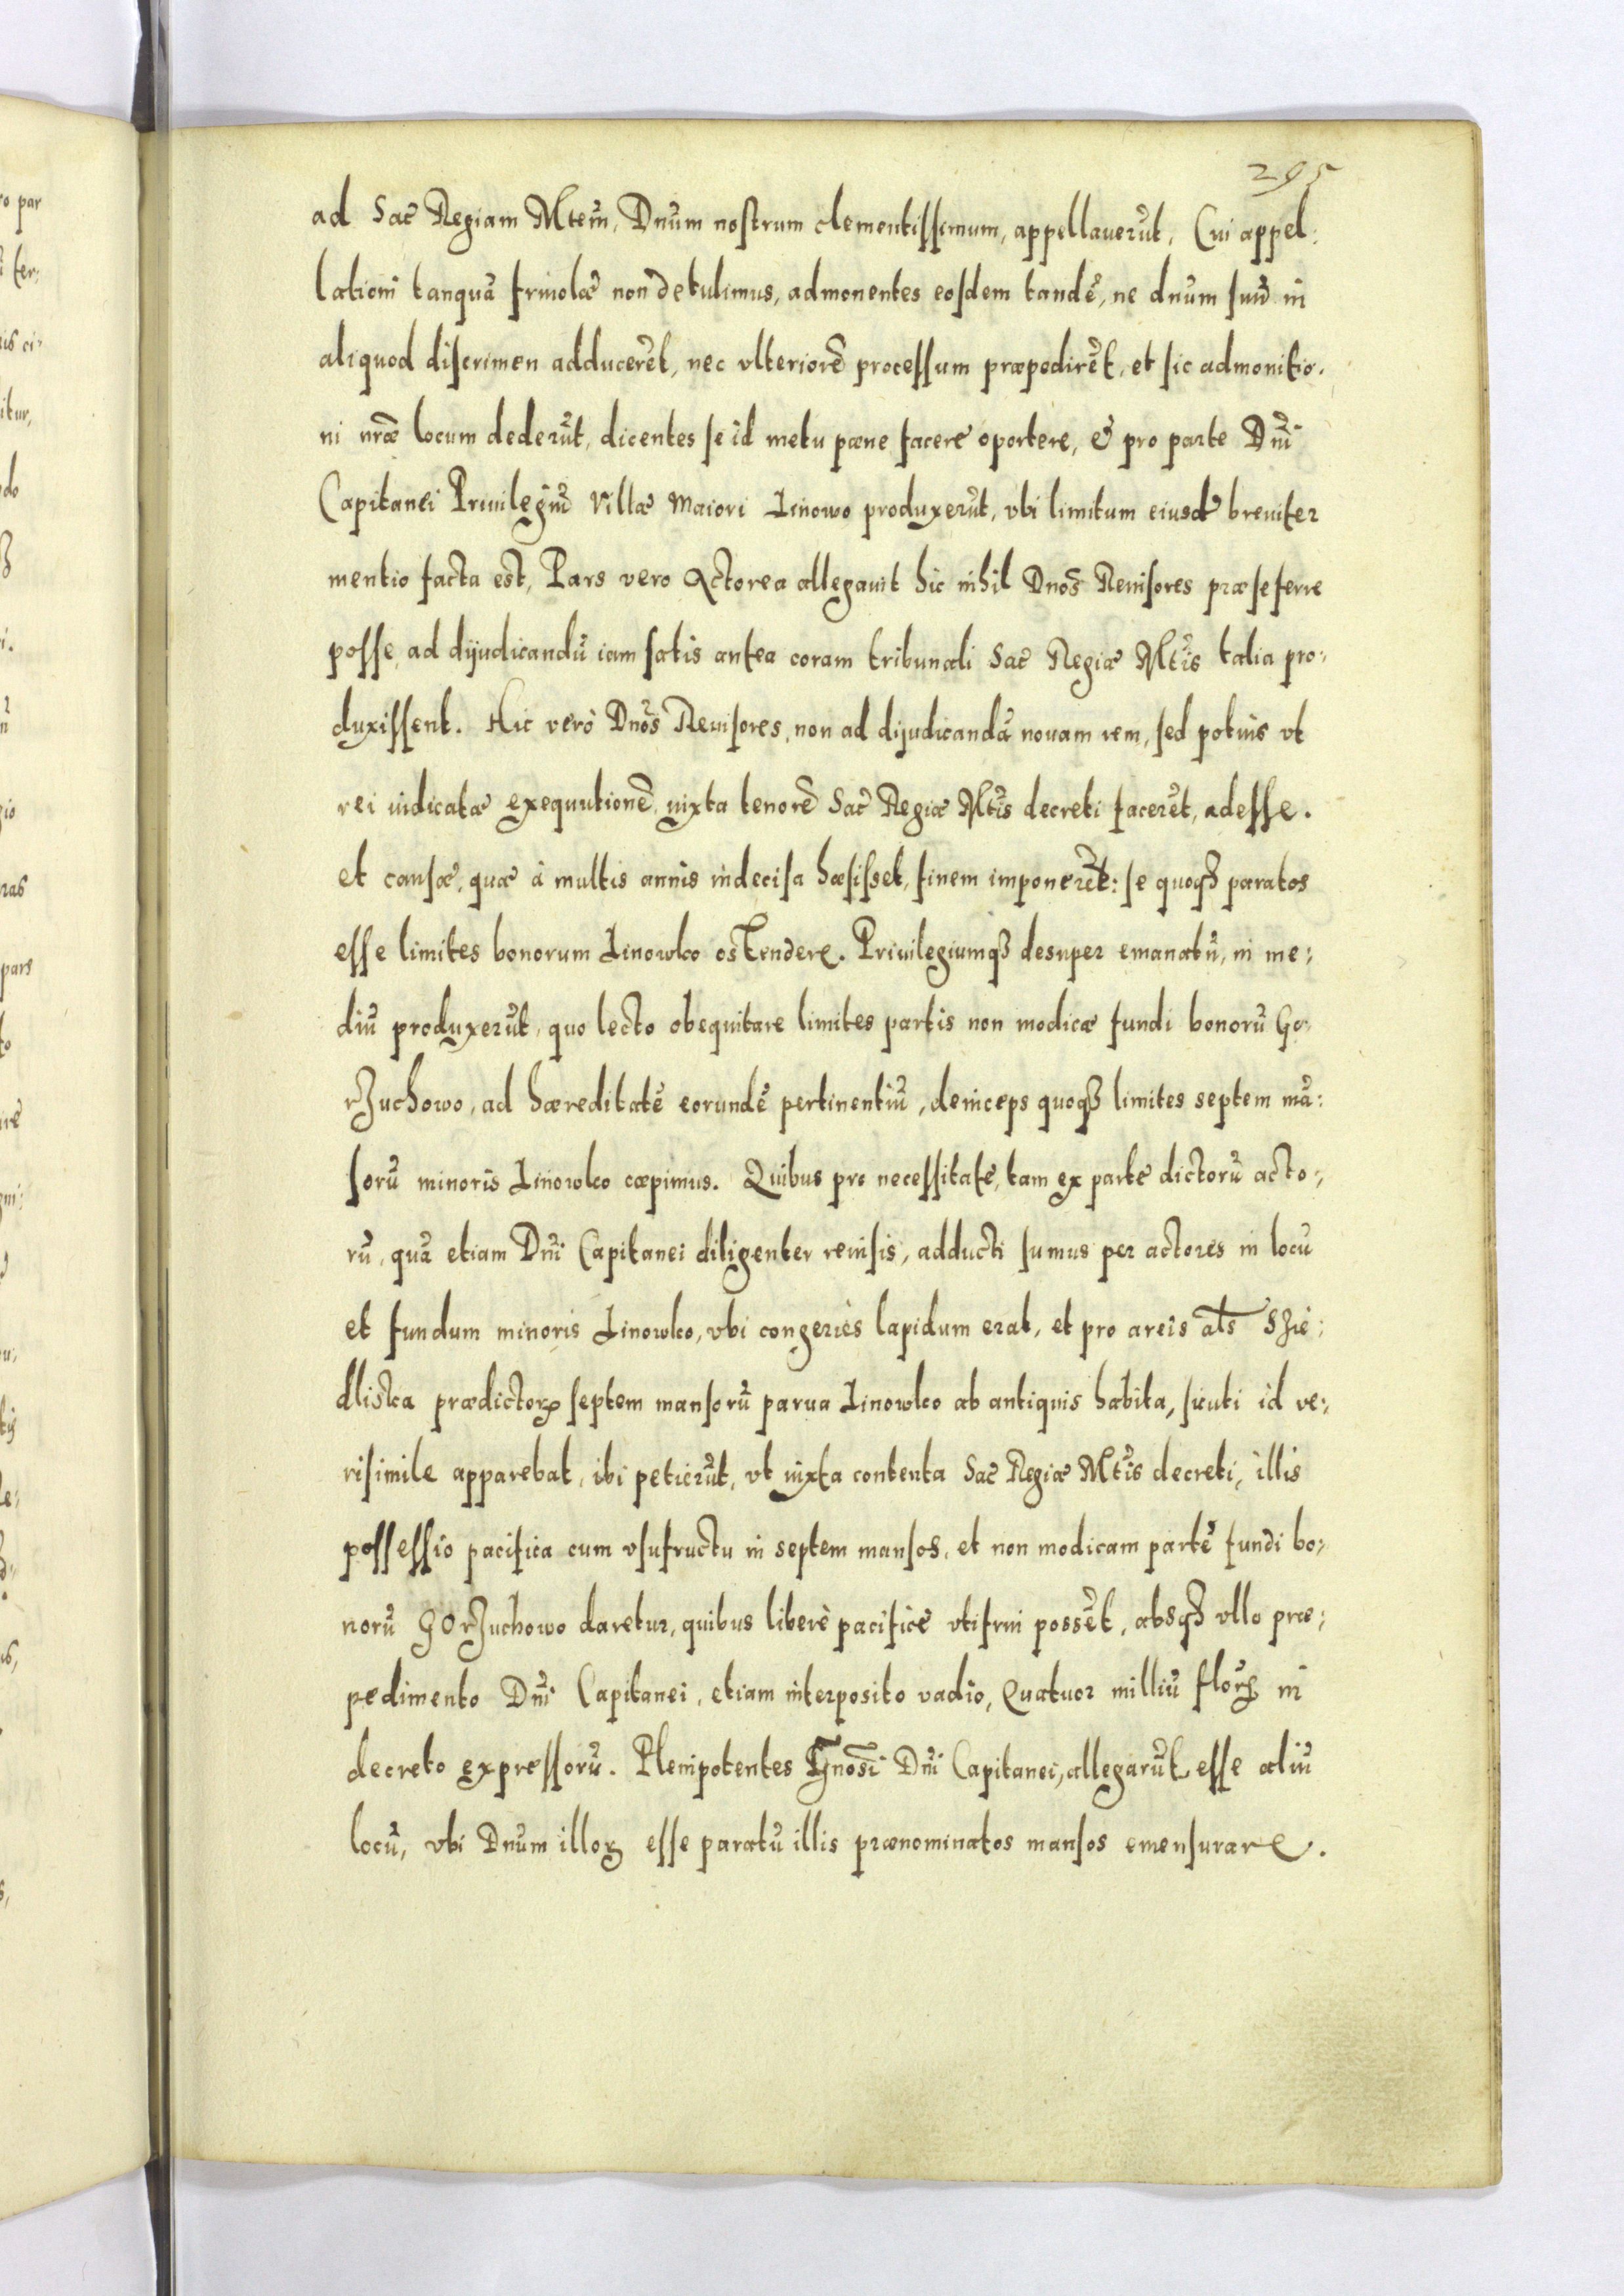 295
ad Sac̃ Regiam Mtem̃, Dnũm nostrum clementissimum, appellauerũt, Cui appel:
lationi tanquã friuolæ non detulimus, admonentes eosdem tandẽ, ne dnũm suũ in
aliquod discrimen adducerẽt, nec vlteriorẽ processum præpedirẽt, et sic admonitio.
ni nr̃æ locum dederũt, dicentes se id metu pæne facere oportere, & pro parte Dnĩ
Capitanei Priuilegiũ Villæ Maiori Linowo produxerũt, vbi limitum eiusd̃ breuiter
mentio facta est, Pars vero Actorea allegauit hic nihil Dnõs Reuisores præ se ferre
posse, ad dijudicandũ iam satis antea coram tribunali Sac̃ Regiæ Mtĩs talia pro:
duxissent. Hic verò Dnõs Reuisores, non ad dijudicandã nouam rem, sed potius vt
rei iudicatæ exequutionẽ, iuxta tenorẽ Sac̃ Regiæ Mtĩs decreti facerẽt, adesse.
et causæ, quæ à multis annis indecisa hæsisset, finem imponerẽt: se quoqȝ paratos
esse limites bonorum Linowko ostendere. Priuilegiumqȝ desuper emanatũ, in me:
diũ produxerũt, quo lecto obequitare limites partis non modicæ fundi bonorũ Go:
rzuchowo, ad hæreditatẽ eorundẽ pertinentiũ, deniceps quoqȝ limites septem mã:
sorũ minoris Linowko cæpimus. Quibus pro necessitate, tam ex parte dictorũ acto:
rũ, quã etiam Dnĩ Capitanei diligenter reuisis, adducti sumus per actores in locũ
et fundum minoris Linowko, vbi congeries lapidum erat, et pro areis al̃s Szie:
dliska prædictorꝝ septem mansorũ parua Linowko ab antiquis habita, sicuti id ve:
risimile apparebat, ibi petierũt, vt iuxta contenta Sac̃ Regiæ Mtĩs decreti, illis
possessio pacifica cum vsufructu in septem mansos, et non modicam partẽ fundi bo:
norũ Gorzuchowo daretur, quibus liberè pacificè vtifrui possẽt, absqȝ vllo præ:
pedimento Dnĩ Capitanei, etiam interposito vadio, Quatuor milliũ florꝝ in
decreto expressorũ. Plenipotentes Gnosĩ Dnĩ Capitanei, allegarũt esse aliũ
locũ, vbi Dnũm illorꝝ esse paratũ illis prænominatos mansos emensurare.